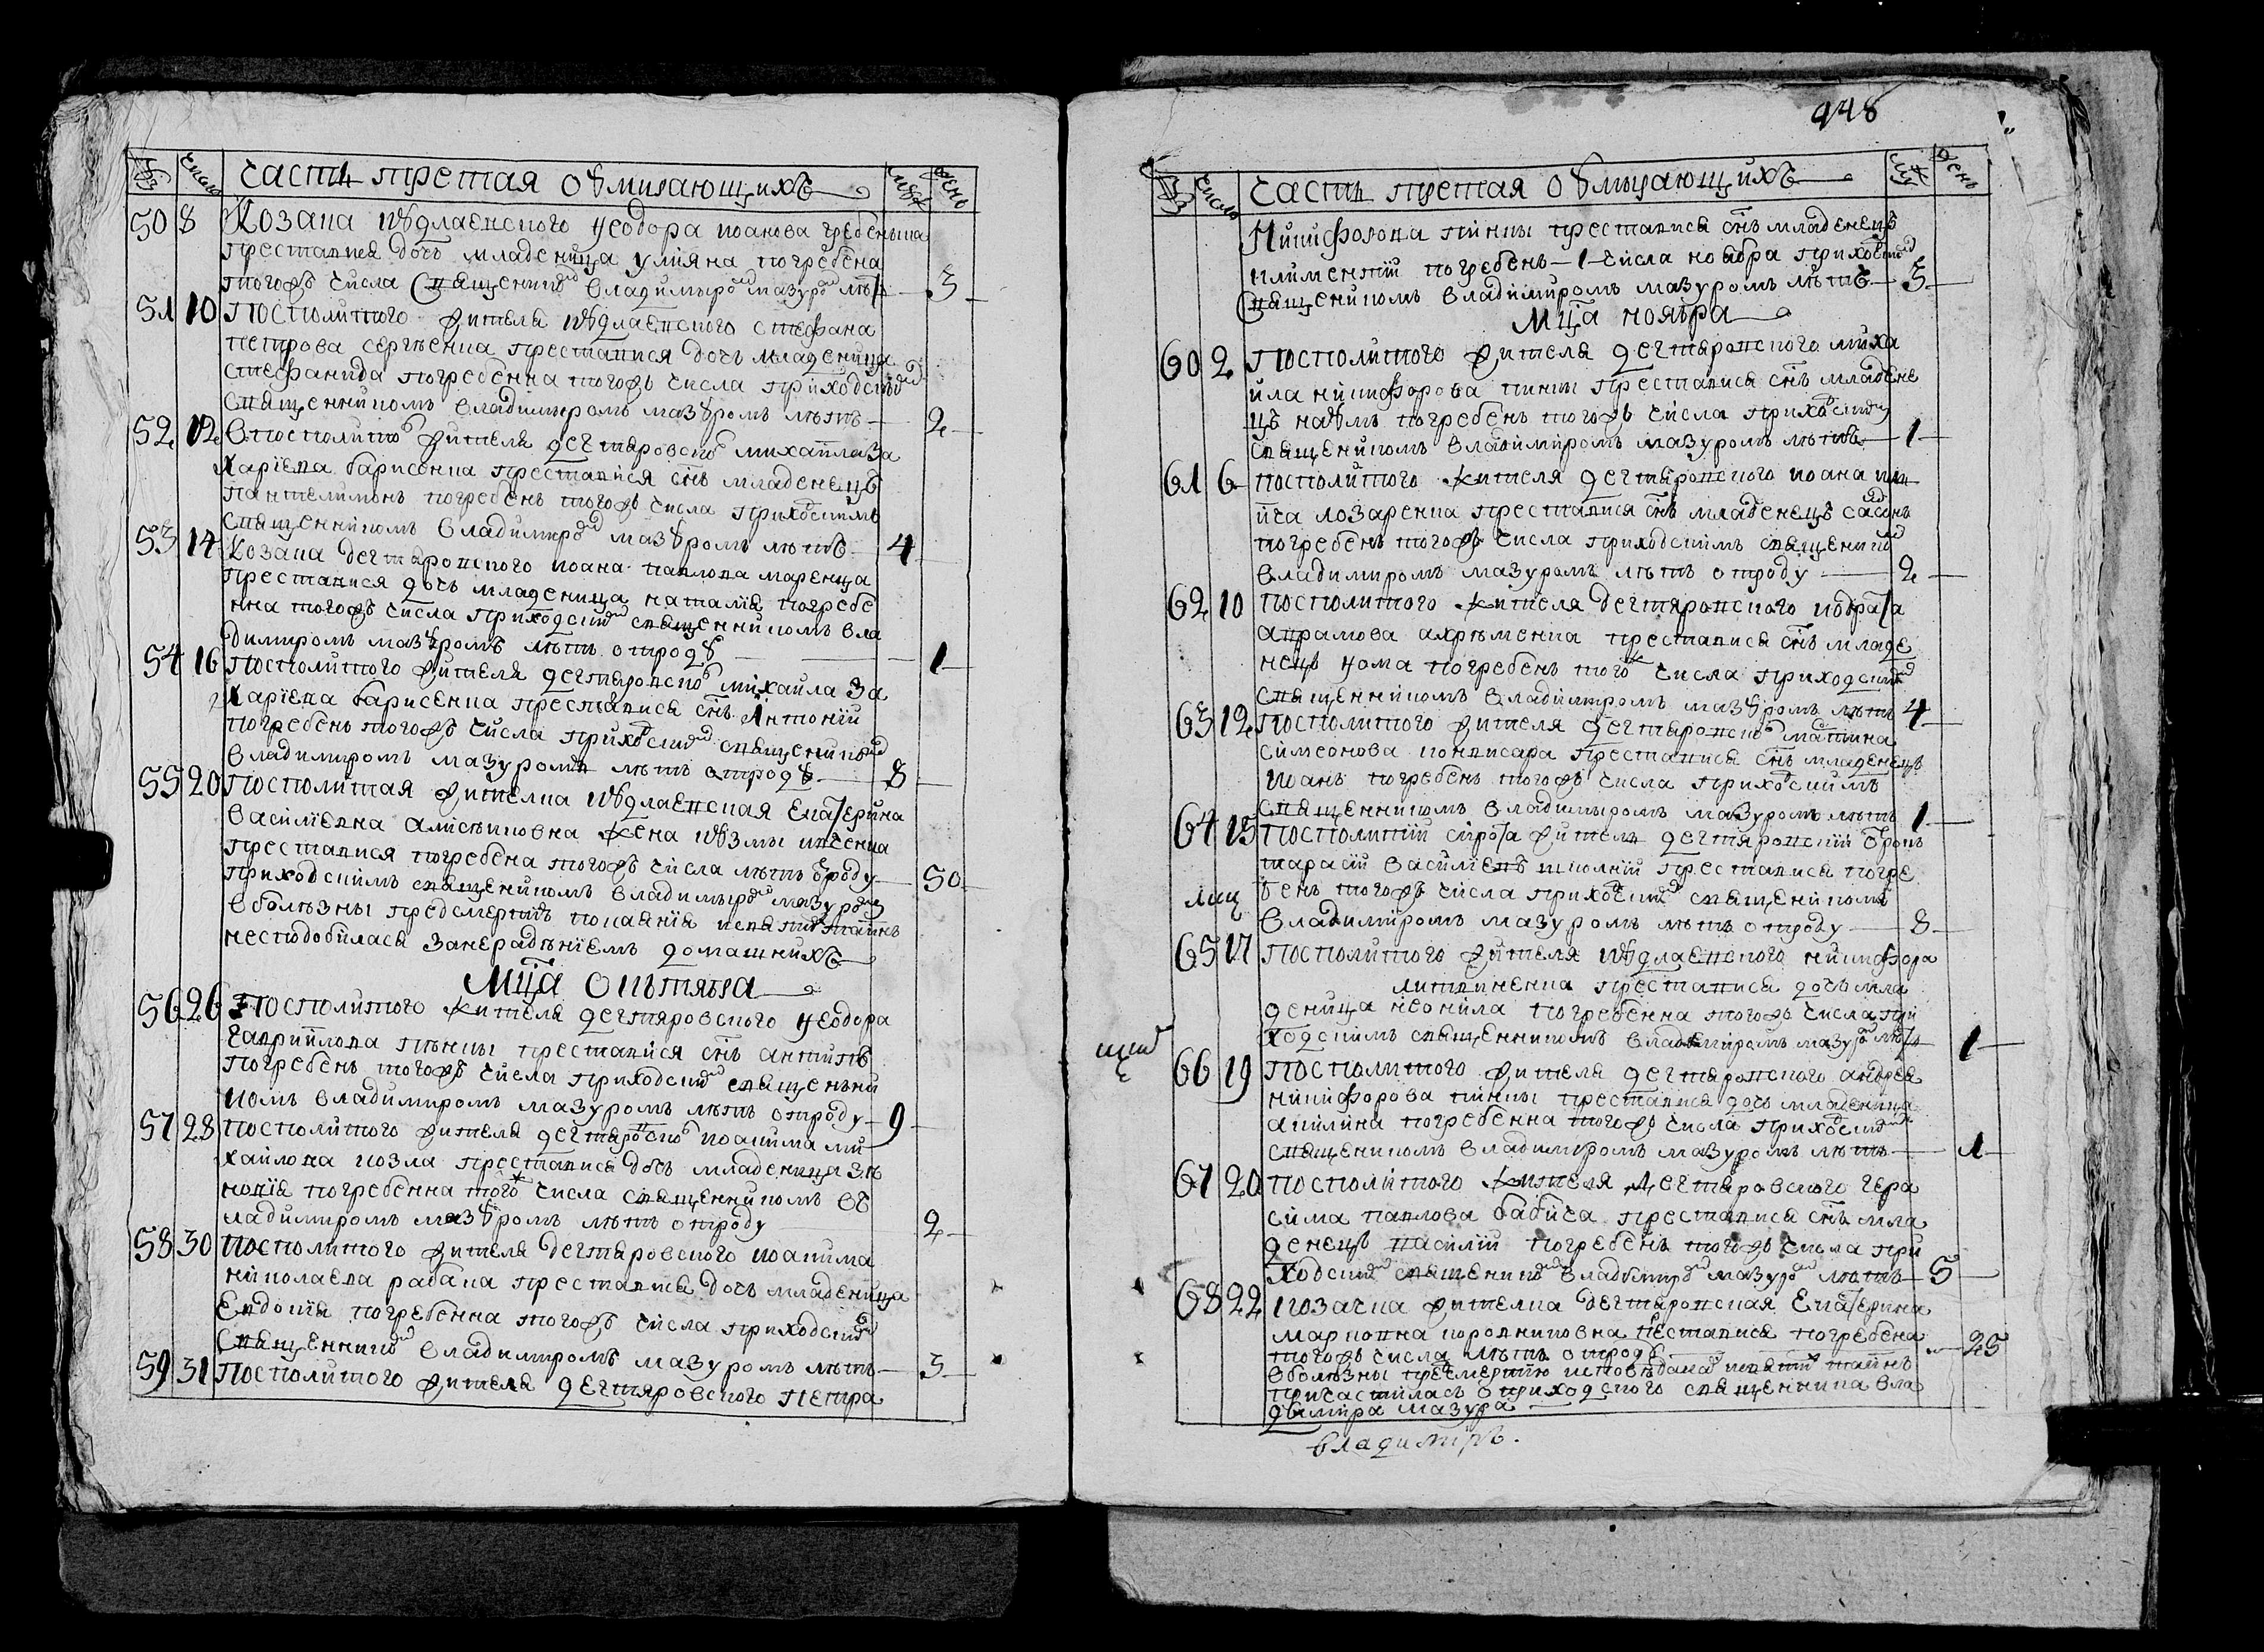 часть третая обмирающихъ
число
50 8 Козака Федора иоанова гребенъика
преставися дочь младеница улияна погребена
тогожъ числа священником владимыром мазуром лѣт 3
51 10 Посполитого жителя стефана
петрова сергѣенка преставися дочь младеница
стефанида погребенна тогожъ числа приходским
священникомъ владимыромъ мазуромъ лѣтъ 2
52 12 посполитого жителя дегтяровского михаила за
харіева барисенка преставися снъ младенецъ
пантелимонъ погребенъ тогожъ числа приходскимъ
священникомъ владимиром мазуромъ лѣтъ 4
53 14 Козака дегтяровского иоана павлова маренца
преставися дочь младеница наталия погребе
нна тогожъ числа приходским священникомъ вла
димиромъ мазуромъ лѣтъ отроду 1
54 16 Посполитого жителя дегтяровского михаила за
харіева барисенка преставися снъ Антоній
погребенъ тогожъ числа приходским священником
владимиромъ мазуромъ лѣтъ отроду 8
55 20 Посполитая жителка Екатерина
василіевна жена
преставися погребена тогожъ числа лѣтъ отроду 50
приходскимъ священикомъ владимыром мазуром
вболѣзны предсмертнъ покаянія тайнъ
несподобилася занерадѣніемъ домашнихъ
Мца октября
56 26 Посполитого жителя дегтяровского Федора
гавриилова пѣнцы преставися снъ антипъ
погребенъ тогожъ числа приходским священъни
комъ владимиромъ мазуромъ лѣтъ отроду 9
57 28 посполитого жителя дегтяровского иоакима ми
хайлова козла преставися дочь младеница зѣ
новія погребенна того ж числа священникомъ въ
ладимиромъ мазуромъ лѣтъ отроду 2
58 30 Посполитого жителя дегтяровского иоакима
николаева рабака преставися дочь младеница
Евдокія погребенна тогожъ числа приходским
священником владимиромъ мазуромъ лѣтъ 3
59 31 Посполитого жителя дегтяровского петра
948
часть третая обмирающихъ
число
Никифорова пінцы преставися снъ младенецъ
климентій погребенъ 1 числа ноября приходским
священикомъ владимиромъ мазуромъ лѣтъ 3
Мца ноября
60 2 Посполитого жителя дегтяровского миха
ила никифорова пинцы преставися снъ младене
цъ наумъ погребенъ тогожъ числа приходским
священикомъ владимиромъ мазуромъ лѣтъ 1
61 6 посполитого жителя дегтяровского иоана
лозаренка преставися снъ младенецъ
погребенъ тогожъ числа приходскимъ священиком
владимиромъ мазуромъ лѣтъ отроду 2
62 10 посполитого жителя дегтяровского кодрата
аврамова ахрѣменка преставися снъ младе
нецъ Фома погребенъ того ж числа приходским
священникомъ владимиромъ мазуромъ лѣтъ 4
63 12 Посполитого жителя дегтяровского
симеонова преставися снъ младенецъ
Иоанъ погребенъ тогожъ числа приходскимъ
священникомъ владимыромъ мазуромъ лѣтъ 1
64 15 Посполитій сирота житель дегтяровскій отрокъ
тарасій василіевъ преставися погре
бенъ тогожъ числа приходским священикомъ
владимиромъ мазуромъ лѣтъ отроду 8
65 17 Посполитого жителя никифора
литвиненка преставися дочь мла
деница неонила погребенна тогожъ числа при
ходскимъ священникомъ владимиромъ мазуром лѣт 1
66 19 Посполитого жителя дегтяровского андрея
никифорова пинцы преставися дочь младеница
акилина погребенна тогожъ числа приходским
священикомъ владимиромъ мазуромъ лѣтъ 1
67 20 Посполитого жителя Дегтяровского гера
сима павлова бабича преставися снъ мла
денецъ василій погребенъ тогожъ числа при
ходским священиком владимиром мазуром лѣтъ 5
68 22 козачка жителка дегтяровская Екатерина
марковна преставися погребена
тогожъ числа лѣтъ отроду 25
вболѣзны исповѣдана тайнъ
причастилась от приходского священника вла
димира мазура
владимиръ.